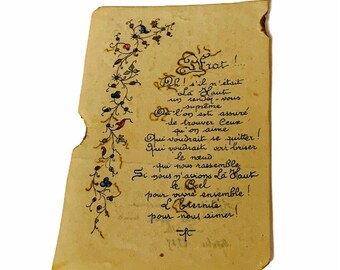 Oh ! s'il n'était
Là Haut
un rendez-vous
suprême
Où l'on est assuré
de trouver Ceux
qu'on aime
Qui voudrait se quitter !
Qui voudrait voir briser
le nœud
qui nous rassemble
Si nous n'avions Là Haut
le Ciel
pour vivre ensemble !
L'Eternité
pour nous aimer !